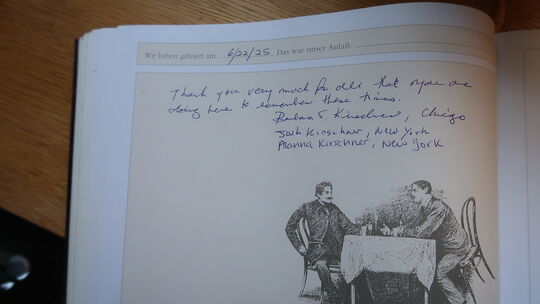 Wir haben gefeiert am: 6/22/25 Das war unser Anlaß:
Thank you very much for all that you are
doing here to remember these times.
Barbara S. Kirschner, Chicgo
Josh Kirschner, New York
Alanna Kirschner, New York